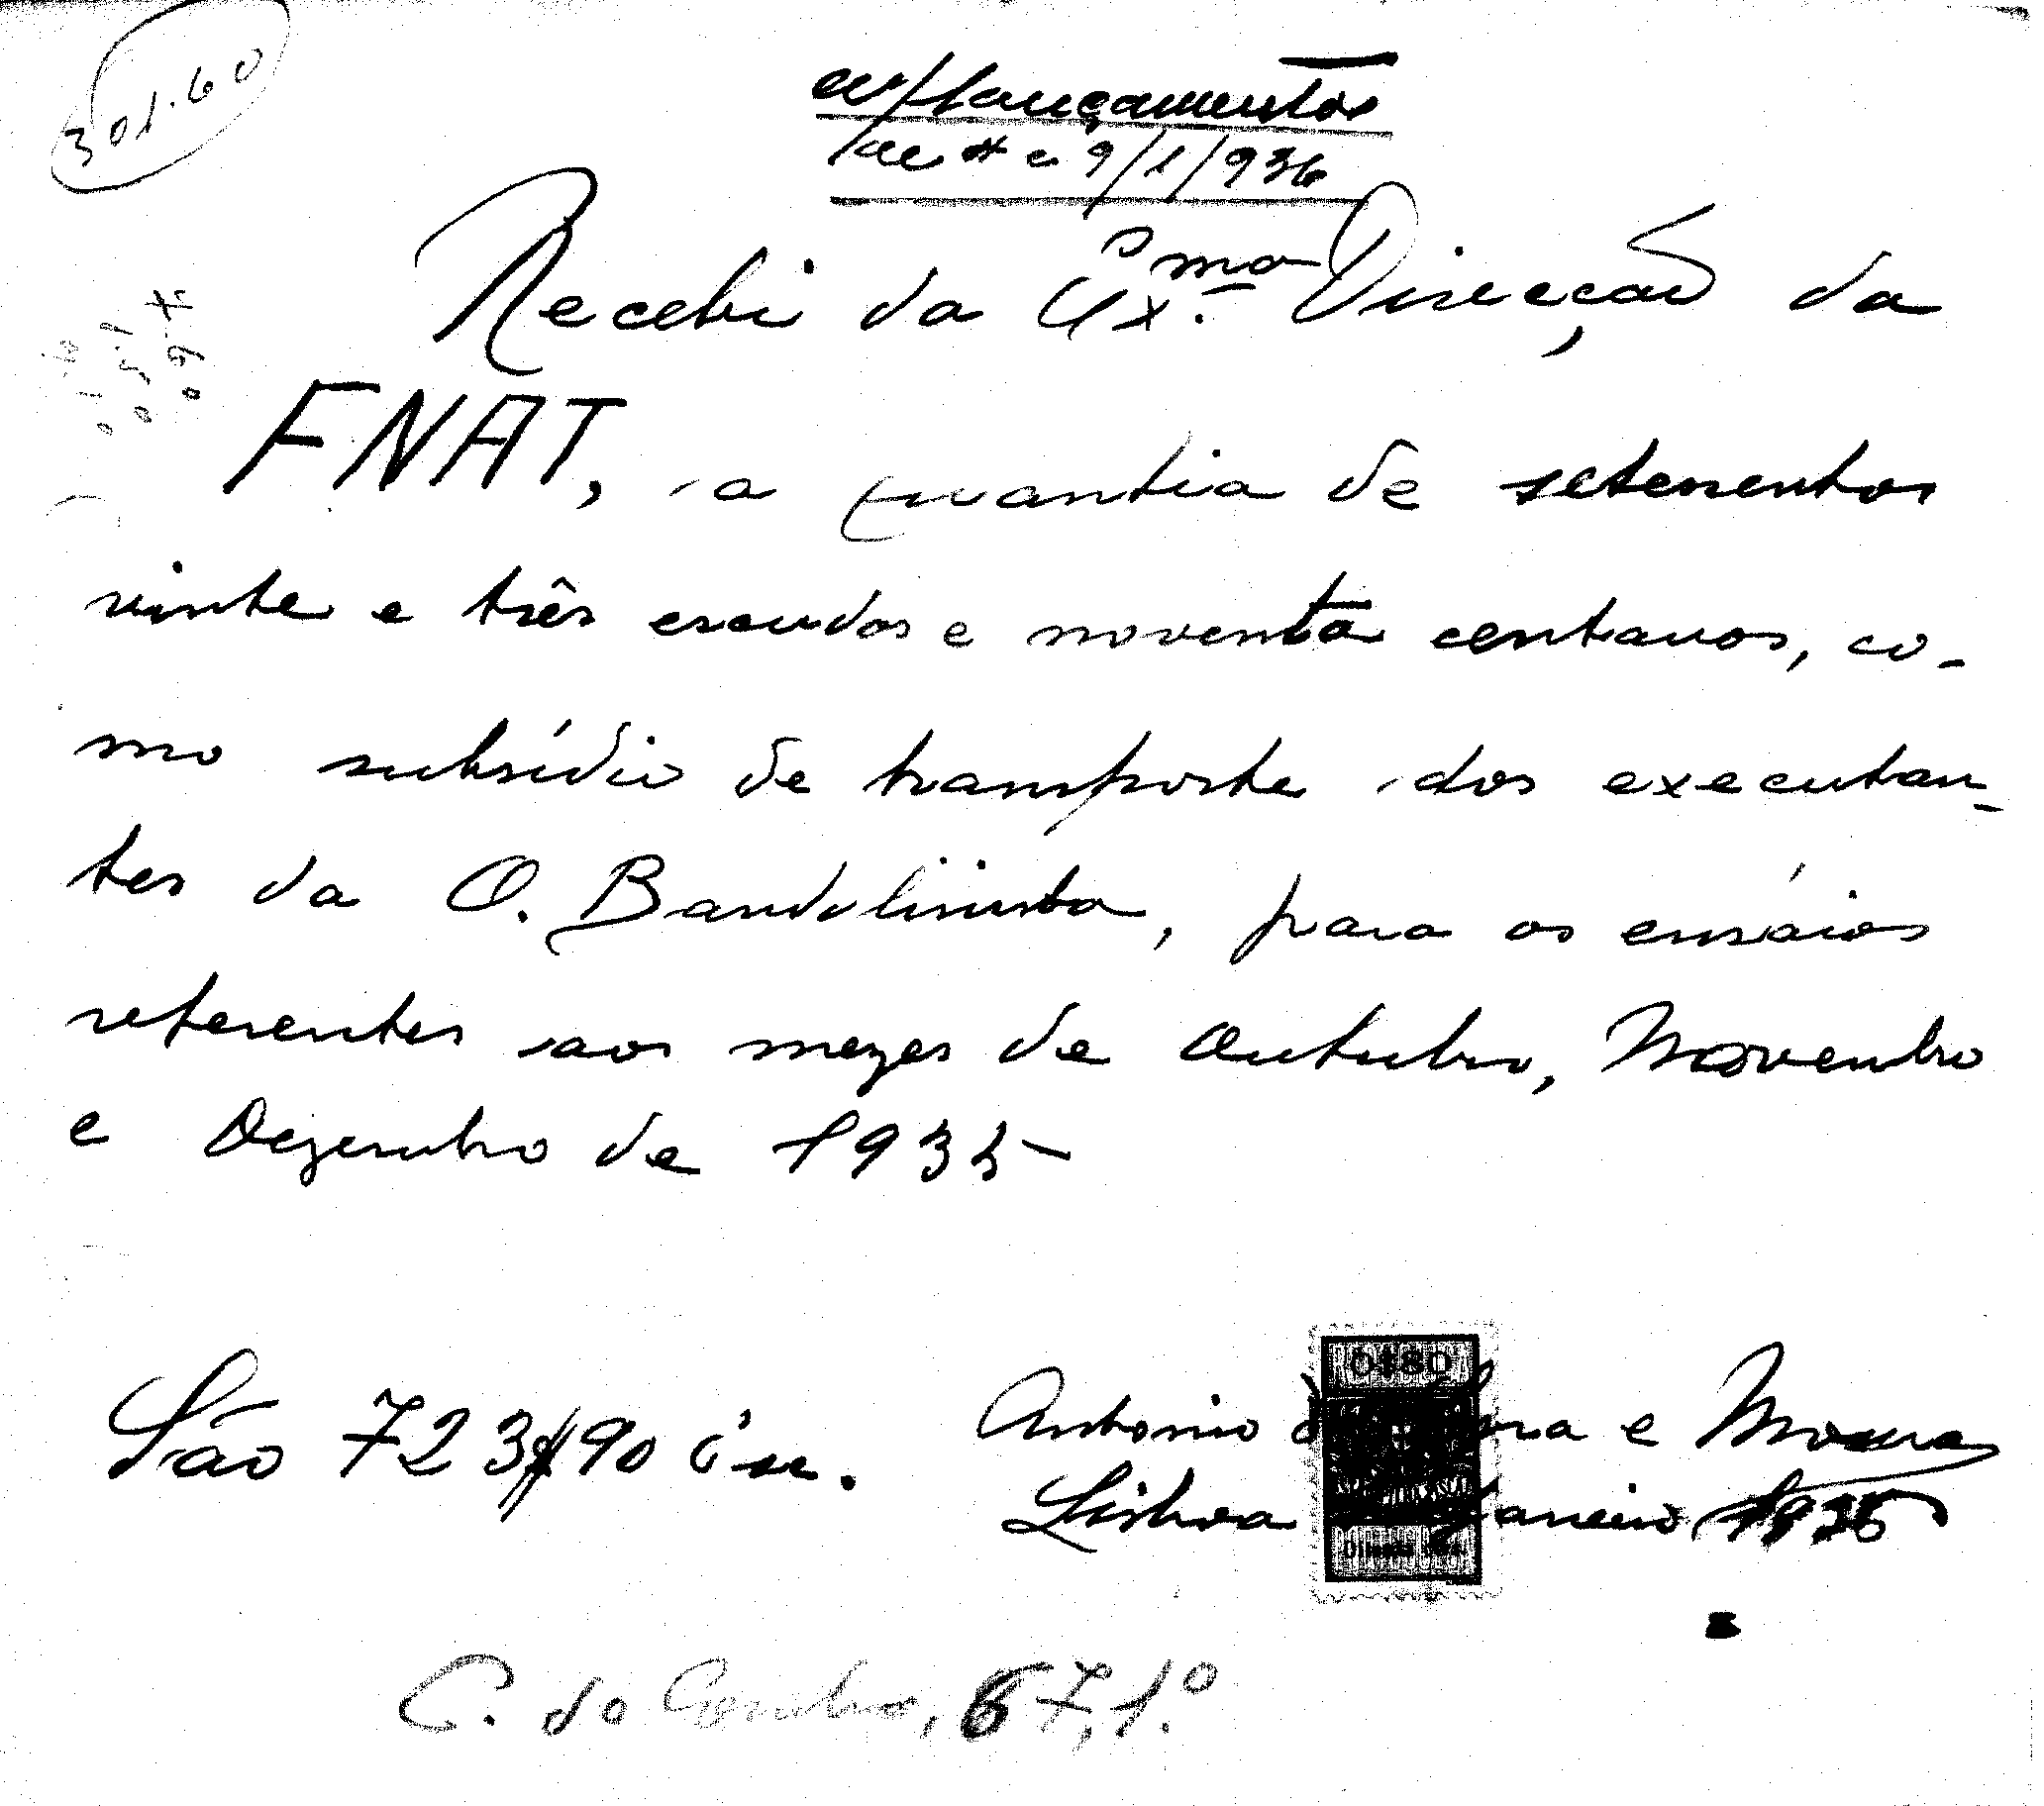 301.60
c/lançamentos
9/1/936
Recebi da Exma. Direcção da
FNAT, a quantia de setecentos
vinte e três escudos e noventa centavos, co-
mo subsídio de transporte dos executan-
tes da O. Bandolinista, para os ensáios
referentes aos mezes de Outubro, Novembro
e Dezembro de 1935
São 723$90
Antonio e Moura
Lisboa Janeiro 1936
C. do Combro, 67, 1.º